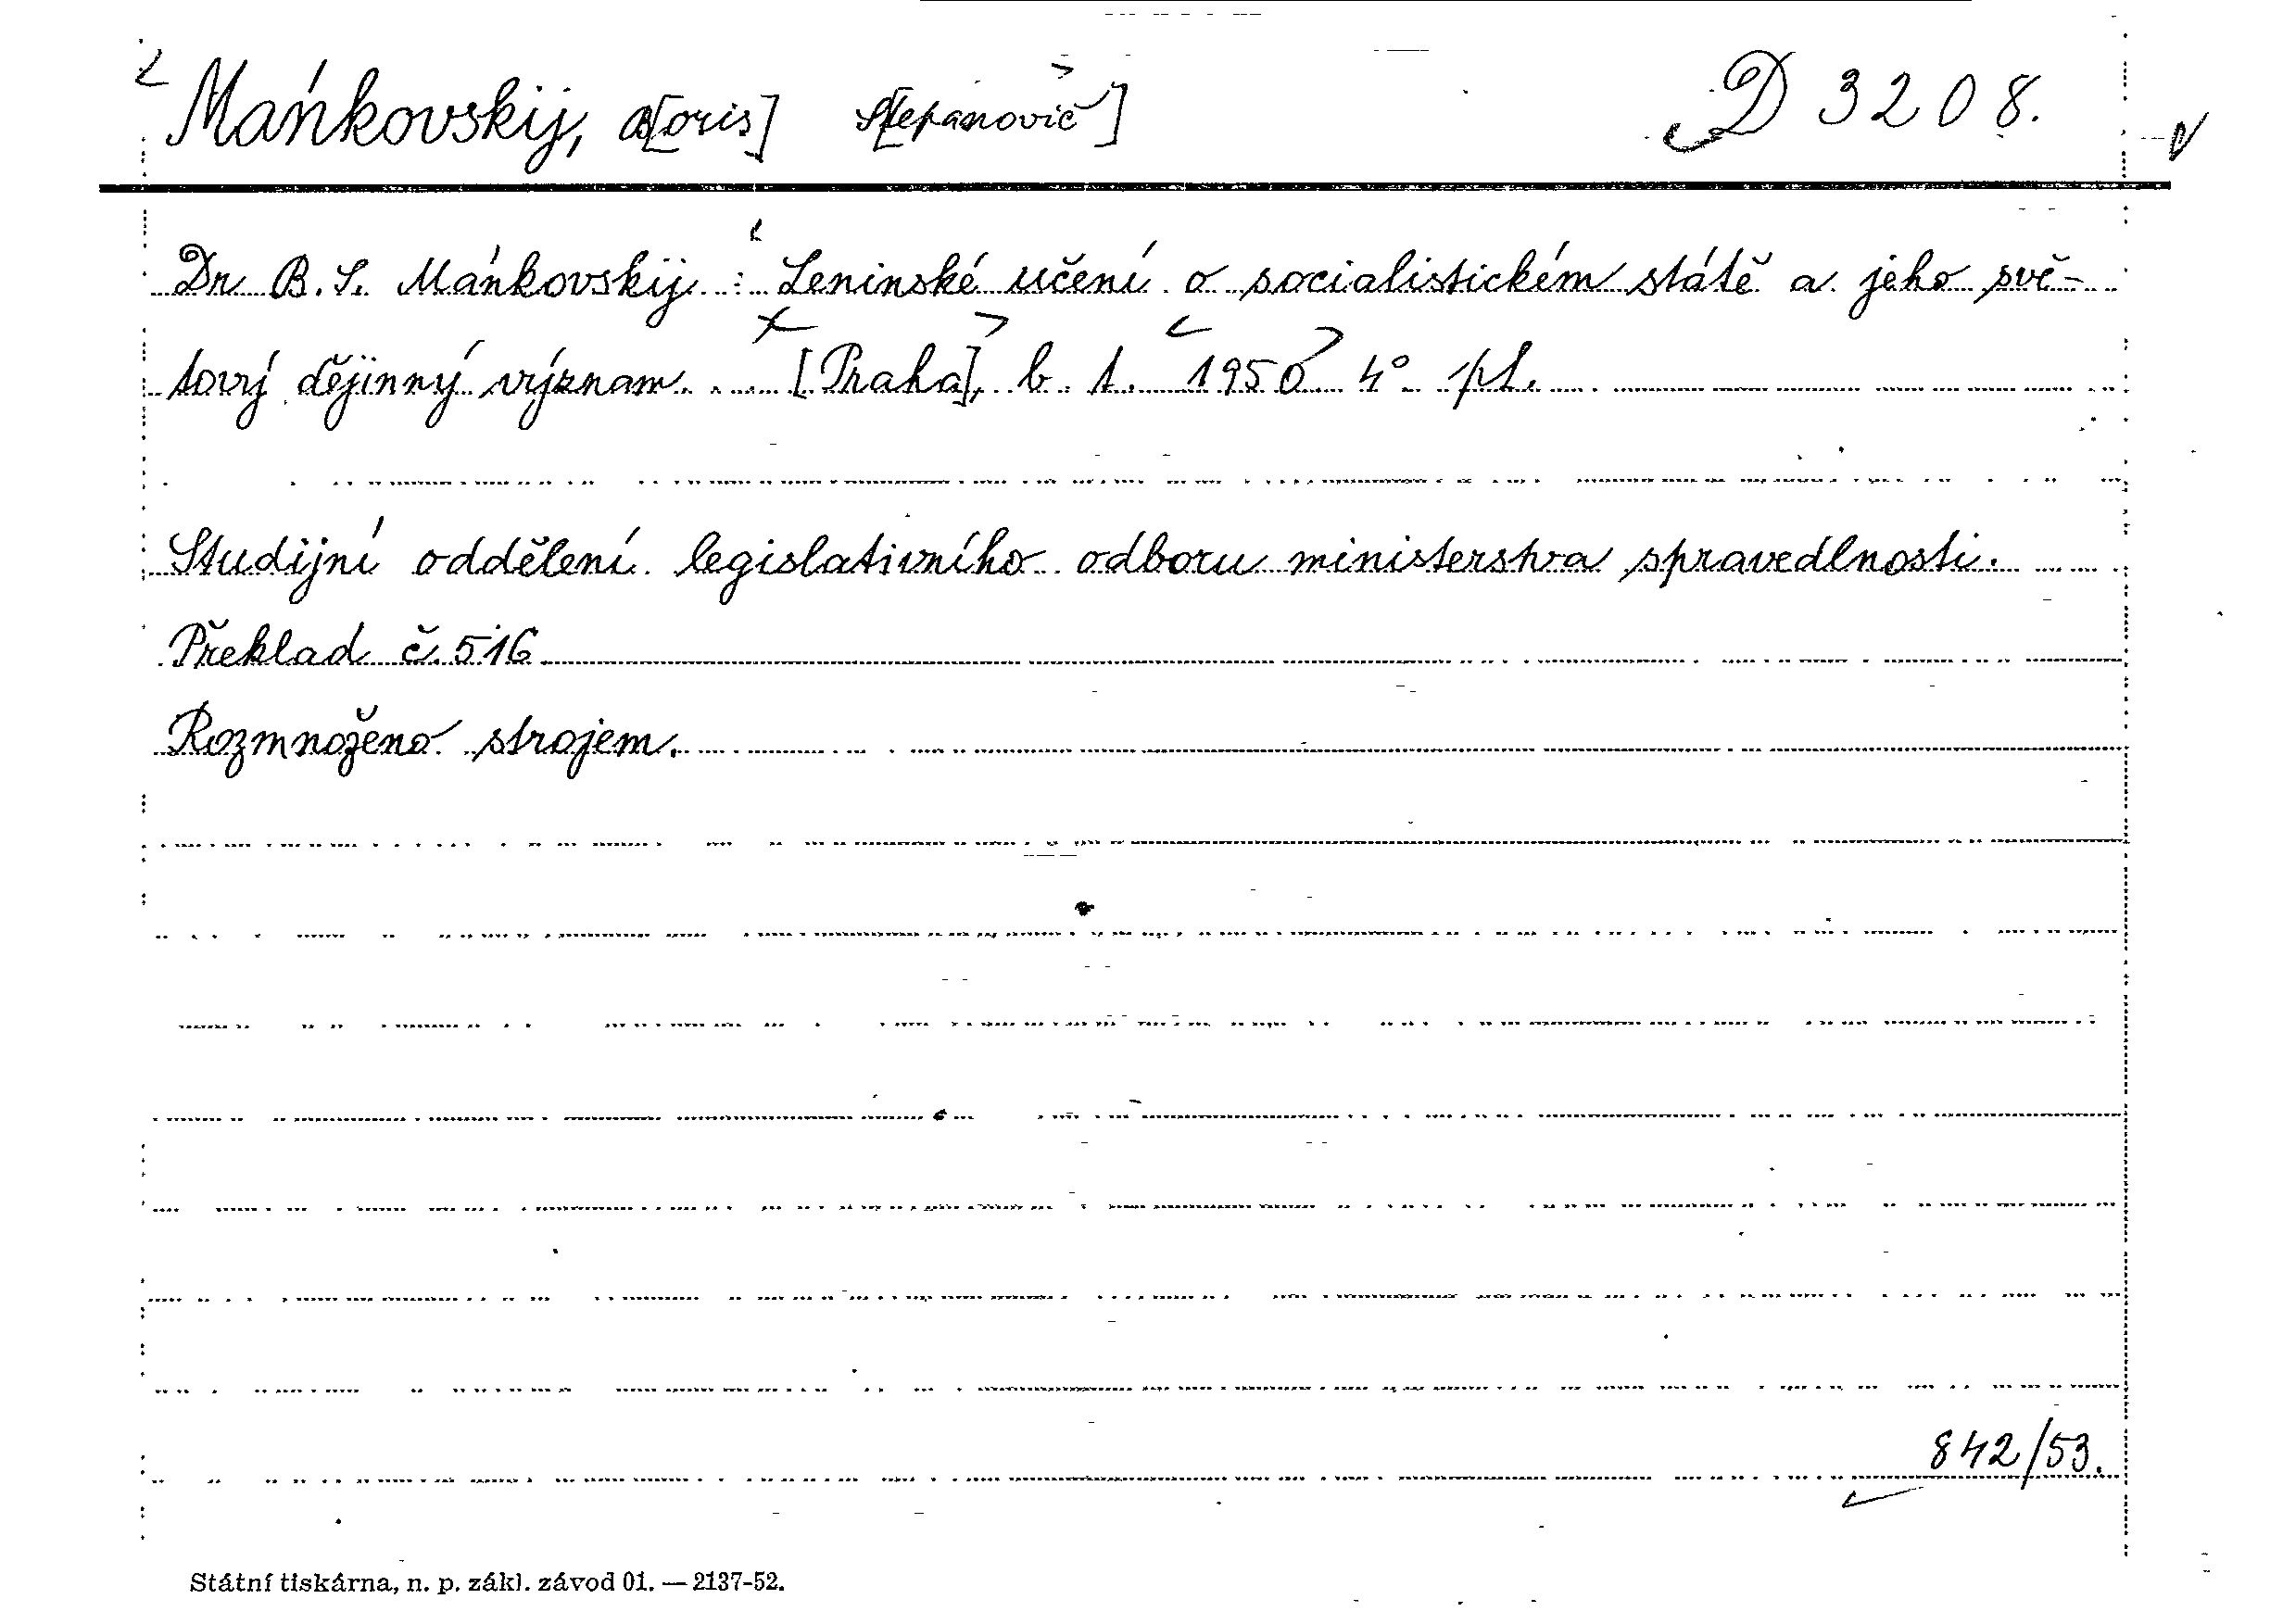 Mańkovskij, B[oris] S[tepanovič] D 3208.
Dr. B. S. Mańkovskij : Leninské učení o socialistickém státě a jeho svě-
tový dějinný význam. [Praha], b. t. 1950 4° pl.
Studijní oddělení legislativního odboru ministerstva spravedlnosti.
Překlad č. 516
Rozmnoženo strojem.
842/53.
Státní tiskárna, n. p. zákl. závod 01. — 2137-52.